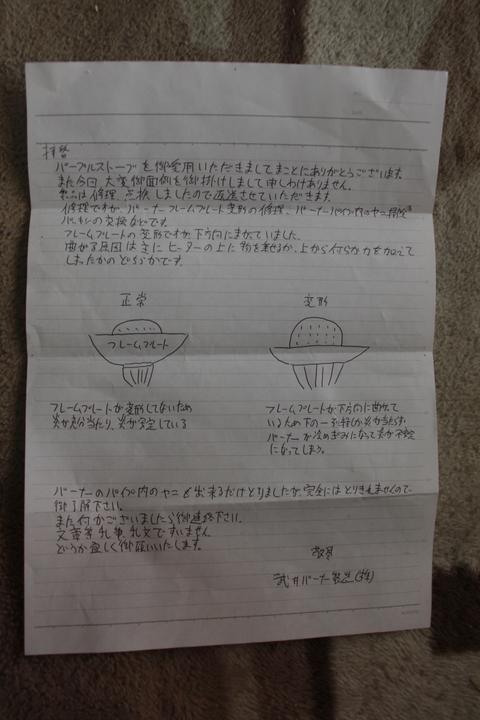 拝啓
パープルストーブを御愛用いただきましてまことにありがとうございます。
また今回大変御面倒を御掛けしまして申しわけありません。
製品は修理、点検しましたので返送させていただきます。
修理ですが、バーナーフレームプレート変形の修理、バーナーパイプ内のヤニ掃除
パッキンの交換などです。
フレームプレートの変形ですが、下方向にまがっていました。
曲がる原因はさにヒーターの上に物を乗せるか、上から何らか力を加えて
しまったかのどちらかです。
正常
変形
フレームプレート
フレームプレートが変形してないため
炎が充分当たり、炎が安定している
フレームプレートが下方向に曲がって
いるため下の
バーナーが冷めぎみになって炎が不安定
になってしまう。
バーナーのパイプ内のヤニも出来るだけとりましたが、完全にはとりきれませんので、
御了解下さい。
また何かございましたら御連絡下さい。
文章等乱筆、乱文ですいません。
どうか宜しく御願いいたします。
敬具
武井バーナー製造(株)